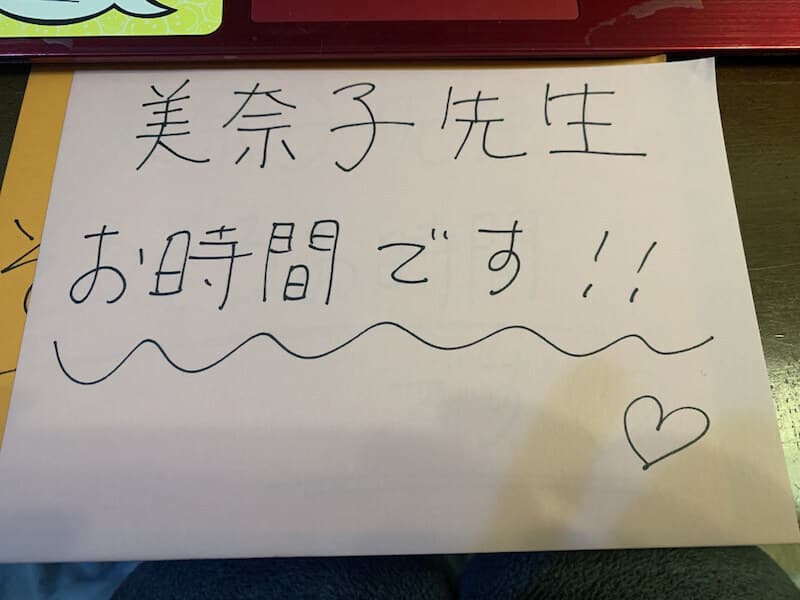 美奈子先生
お時間です!!